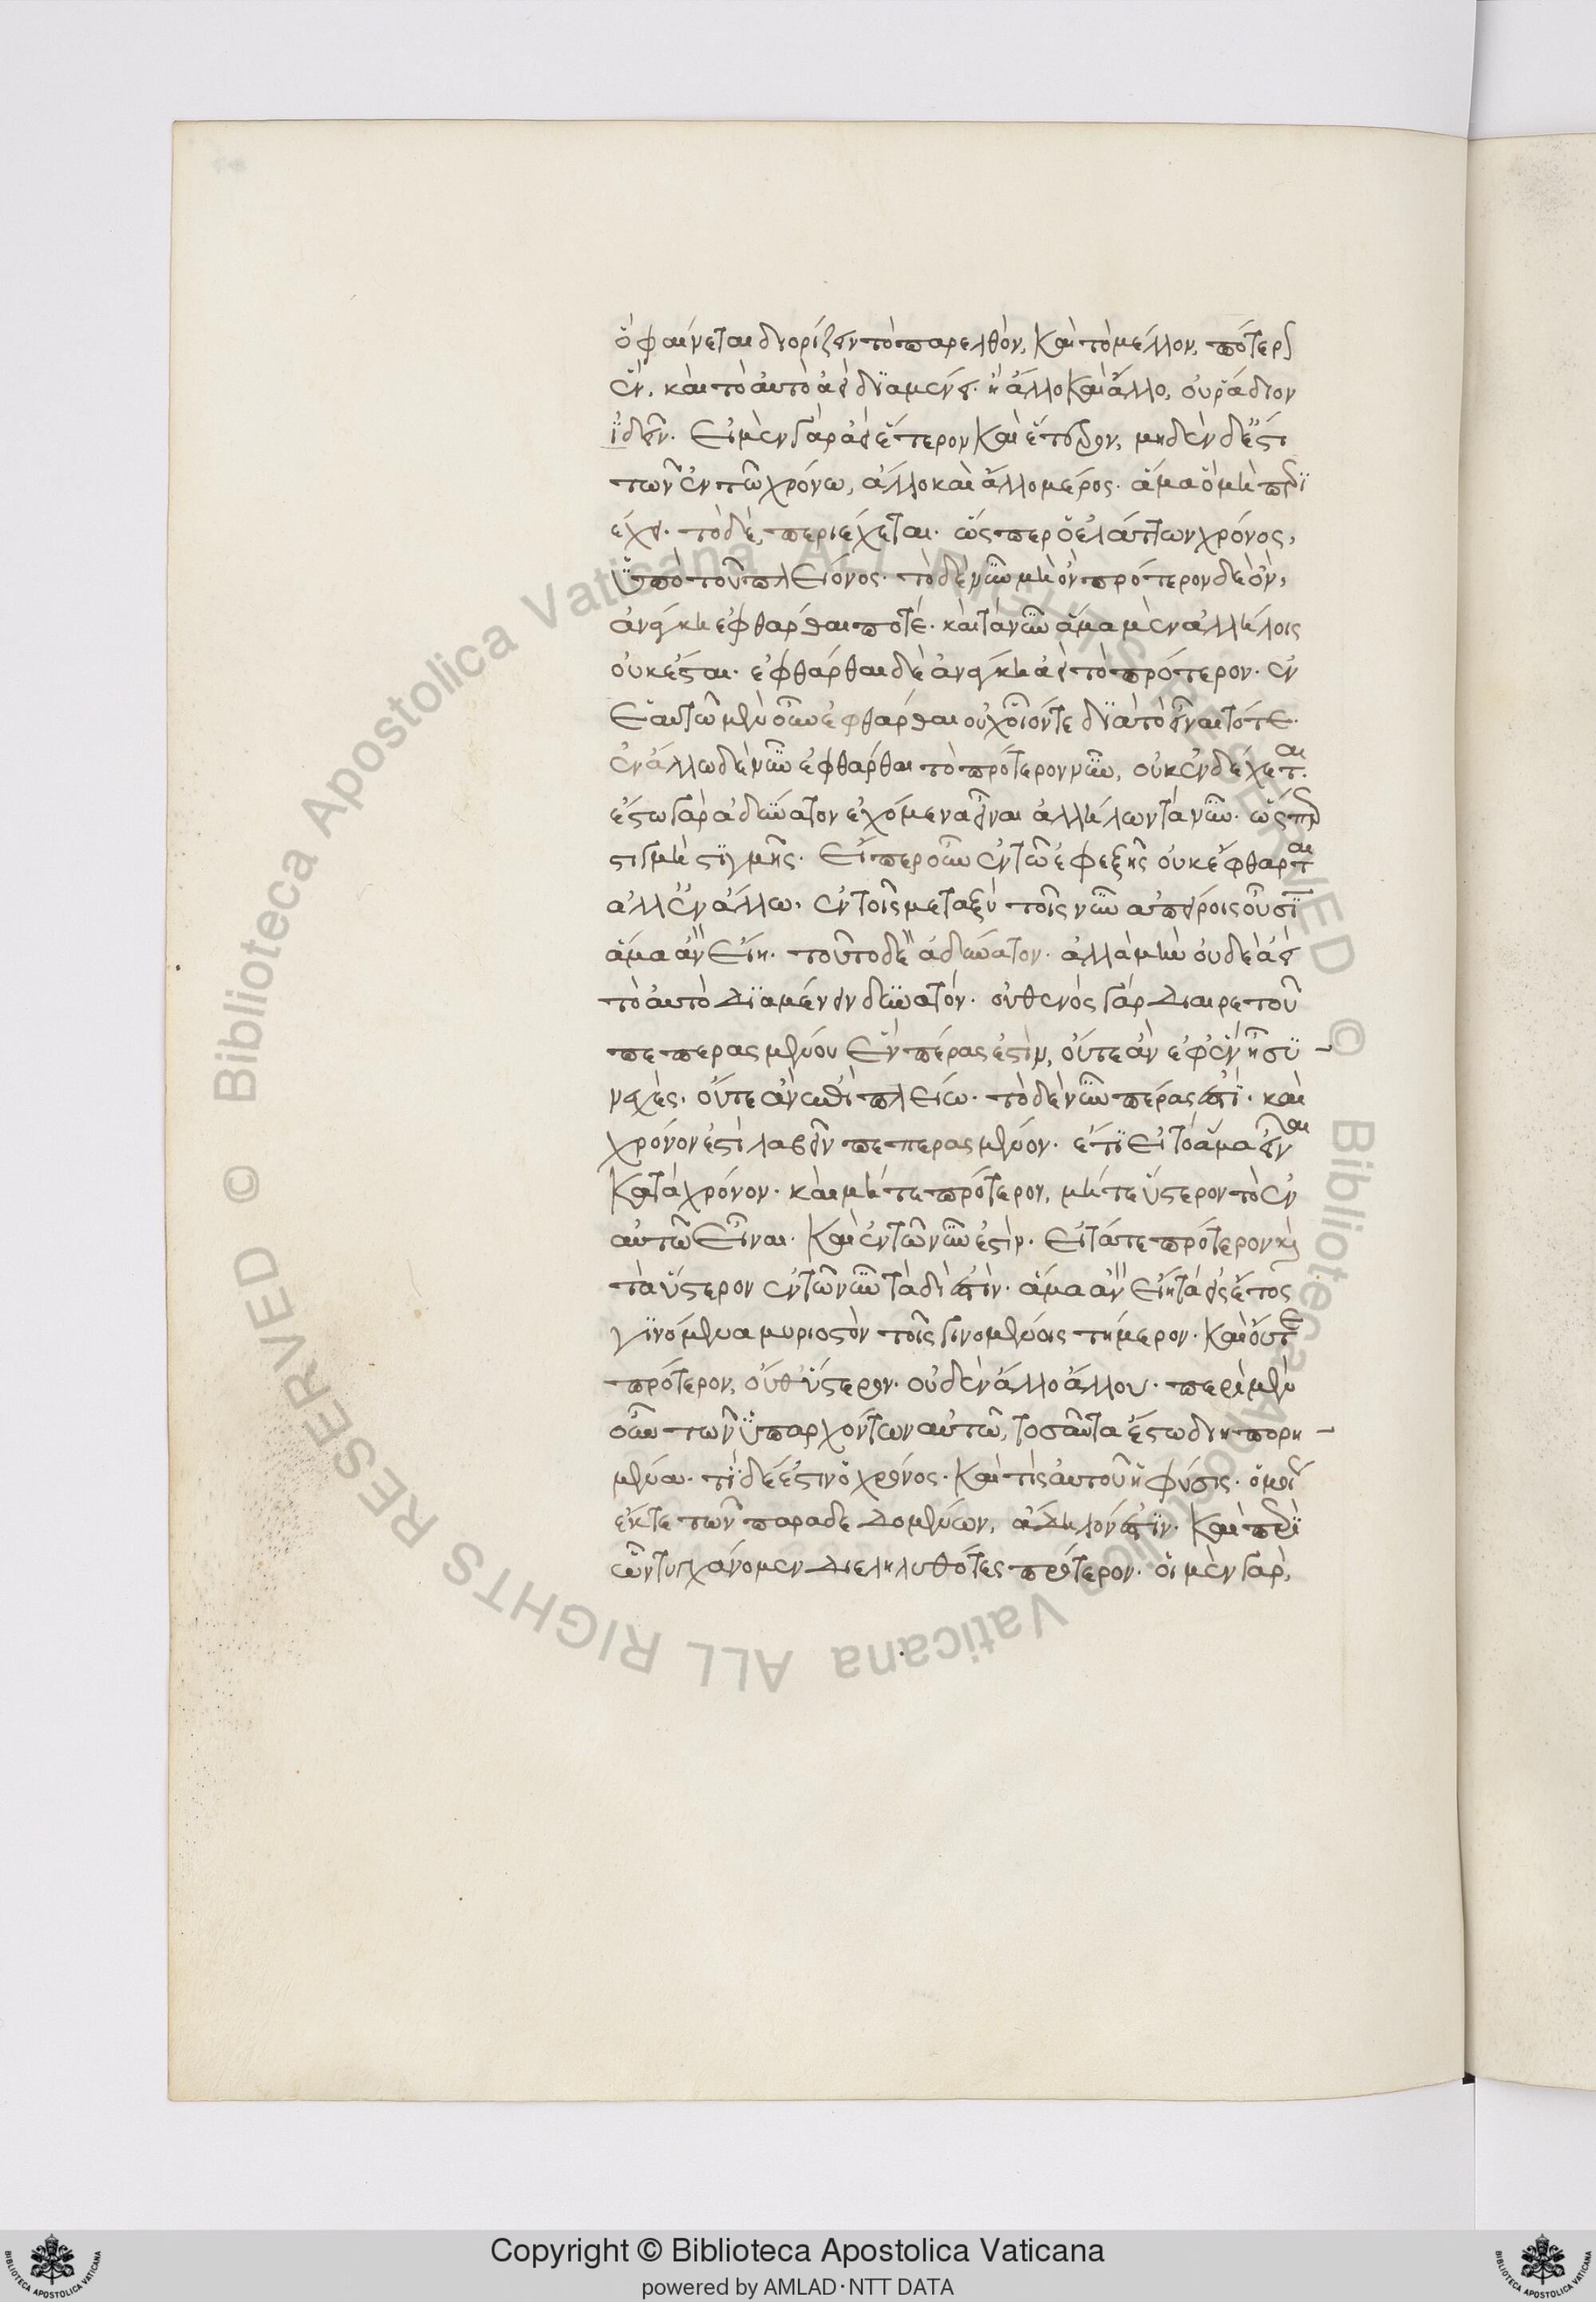 ὃ φαίνεται διορίζειν τὸ παρελθὸν, καὶ τὸ μέλλον, πότερον
ἓν, καὶ τὸ αὐτὸ ἀεὶ διαμένει. ἢ ἄλλο καὶ ἄλλο, οὐ ῥάδιον
ἰδεῖν. εἰ μὲν γὰρ ἀεὶ ἕτερον καὶ ἕτερον, μηδὲν δ' ἐστὶ
τῶν ἐν τῶ χρόνω, ἄλλο καὶ ἄλλο μέρος. ἅμα ὃ μὴ περι
έχει. τὸ δὲ, περιέχεται. ὥσπερ ὁ ἐλάττων χρόνος,
ὑπὸ τοῦ πλείονος. τὸ δὲ νῦν μὴ ὂν πρότερον δὲ ὂν,
ἀνάγκη ἐφθάρθαι ποτέ. καὶ τὰ νῦν ἅμα μὲν ἀλλήλοις
οὐκ ἔσται. ἐφθάρθαι δὲ ἀνάγκη ἀεὶ τὸ πρότερον. ἐν
ἑαυτῶ μὲν οὖν ἐφθάρθαι οὐχ οἷόντε διὰ τὸ εἶναι τότε.
ἐν ἄλλω δὲ νῦν ἐφθάρθαι τὸ πρότερον νῦν, οὐκ ἐνδέχεται.
ἔστω γὰρ ἀδύνατον ἐχόμενα εἶναι ἀλλήλων τὰ νῦν. ὥσπερ
στιγμὴ στιγμῆς. εἴπερ οὖν ἐν τῶ ἐφεξῆς οὐκ ἔφθαρται
ἀλλ' ἐν ἄλλω, ἐν τοῖς μεταξὺ τοῖς νῦν ἀπείροις οὖσιν
ἅμα ἂν εἴη. τοῦτο δὲ ἀδύνατον. ἀλλὰ μὴν οὐδὲ ἀεὶ
τὸ αὐτὸ διαμένειν δυνατόν. οὐθενὸς γὰρ διαιρετοῦ
πεπερασμένου ἓν πέρας ἐστὶν, οὔτε ἂν ἐφ' ἓν ἦ συ-
νεχὲς. οὔτε ἂν ἐπὶ πλείω. τὸ δὲ νῦν πέρας ἐστὶ. καὶ
χρόνον ἐστὶ λαβεῖν πεπερασμένον. ἔτι εἰ τὸ ἅμα εἶναι
κατὰ χρόνον. καὶ μήτε πρότερον, μήτε ὕστερον τὸ ἐν
αὐτῶ εἶναι. καὶ ἐν τῶ νῦν ἐστὶν. εἰ τά τε πρότερον καὶ
τὰ ὕστερον ἐν τῶ νῦν τωδί ἐστὶν. ἅμα ἂν εἴη τὰ εἰς ἔτος
γινόμενα μυριοστὸν τοῖς γινομένοις τήμερον. καὶ οὔτε
πρότερον, οὔθ' ὕστερον. οὐδὲν ἄλλο ἄλλου. περὶ μὲν
οὖν τῶν ὑπαρχόντων αὐτῶ, τοσαῦτα ἔστω διηπορη-
μένα. τί δέ ἐστιν ὁ χρόνος. καὶ τίς αὐτοῦ ἡ φύσις. ὁμοί
ἔκ τε τῶν παραδεδομένων, ἄδηλόν ἐστιν. καὶ περὶ
ὧν τυγχάνομεν διεληλυθότες πρότερον. οἱ μὲν γὰρ,